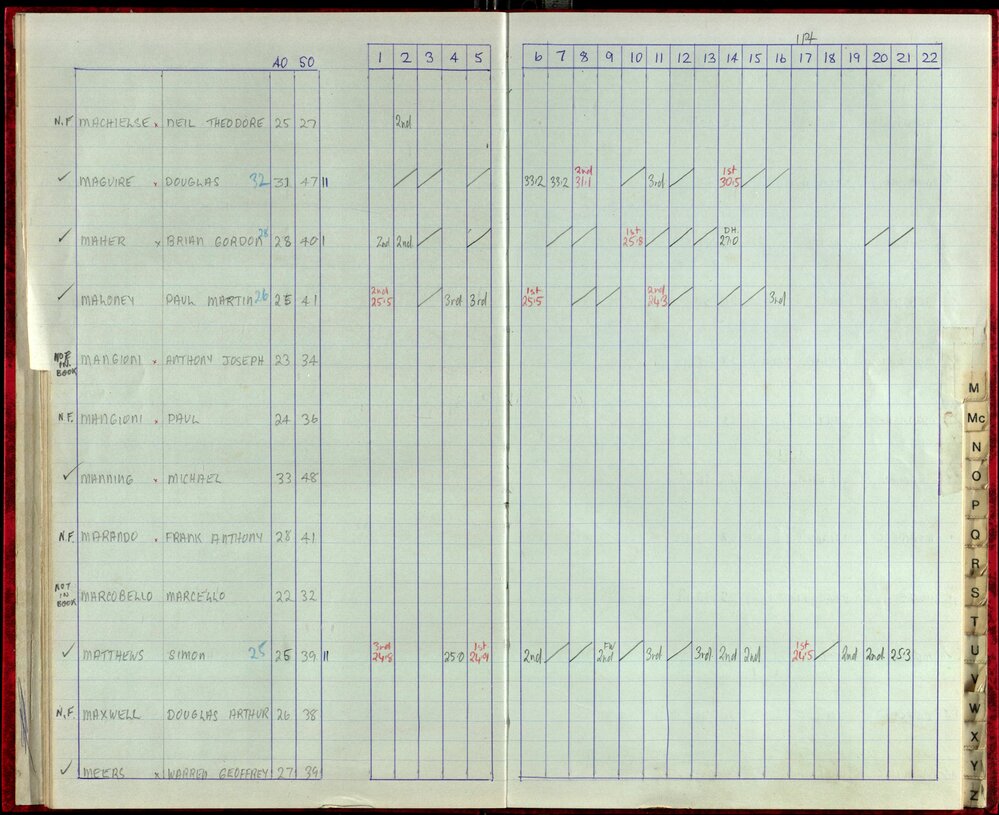 1Pt
40 50 1 2 3 4 5 6 7 8 9 10 11 12 13 14 15 16 17 18 19 20 21 22
N.F MACHIELSE x NEIL THEODORE 25 27 2nd
✓ MAGUIRE x DOUGLAS 32 31 47 11 / / / 33.2 33.2 2nd 31.1 / 3rd / 1st 30.5 / /
✓ MAHER x BRIAN GORDON 28 28 40 1 2nd 2nd / / / / 1st 25.8 / / / D.H. 27.0 / /
✓ MALONEY PAUL MARTIN 26 25 41 2nd 25.5 / 3rd 3rd 1st 25.5 / / 2nd 24.3 / / / 3rd
NOT IN BOOK MANGIONI x ANTHONY JOSEPH 23 34
N.F. MANGIONI x PAUL 24 36
✓ MANNING x MICHAEL 33 48
N.F. MARANDO x FRANK ANTHONY 28 41
NOT IN BOOK MARCOBELLO MARCELLO 22 32
✓ MATTHEWS SIMON 25 25 39 11 3rd 24.8 25.0 1st 24.9 2nd / / FW 2nd / 3rd / 3rd 2nd 2nd 1st 24.5 / 2nd 2nd 25.3
N.F. MAXWELL DOUGLAS ARTHUR 26 38
✓ MEIERS x WARREN GEOFFREY 27 39
M
Mc
N
O
P
Q
R
S
T
U
V
W
X
Y
Z